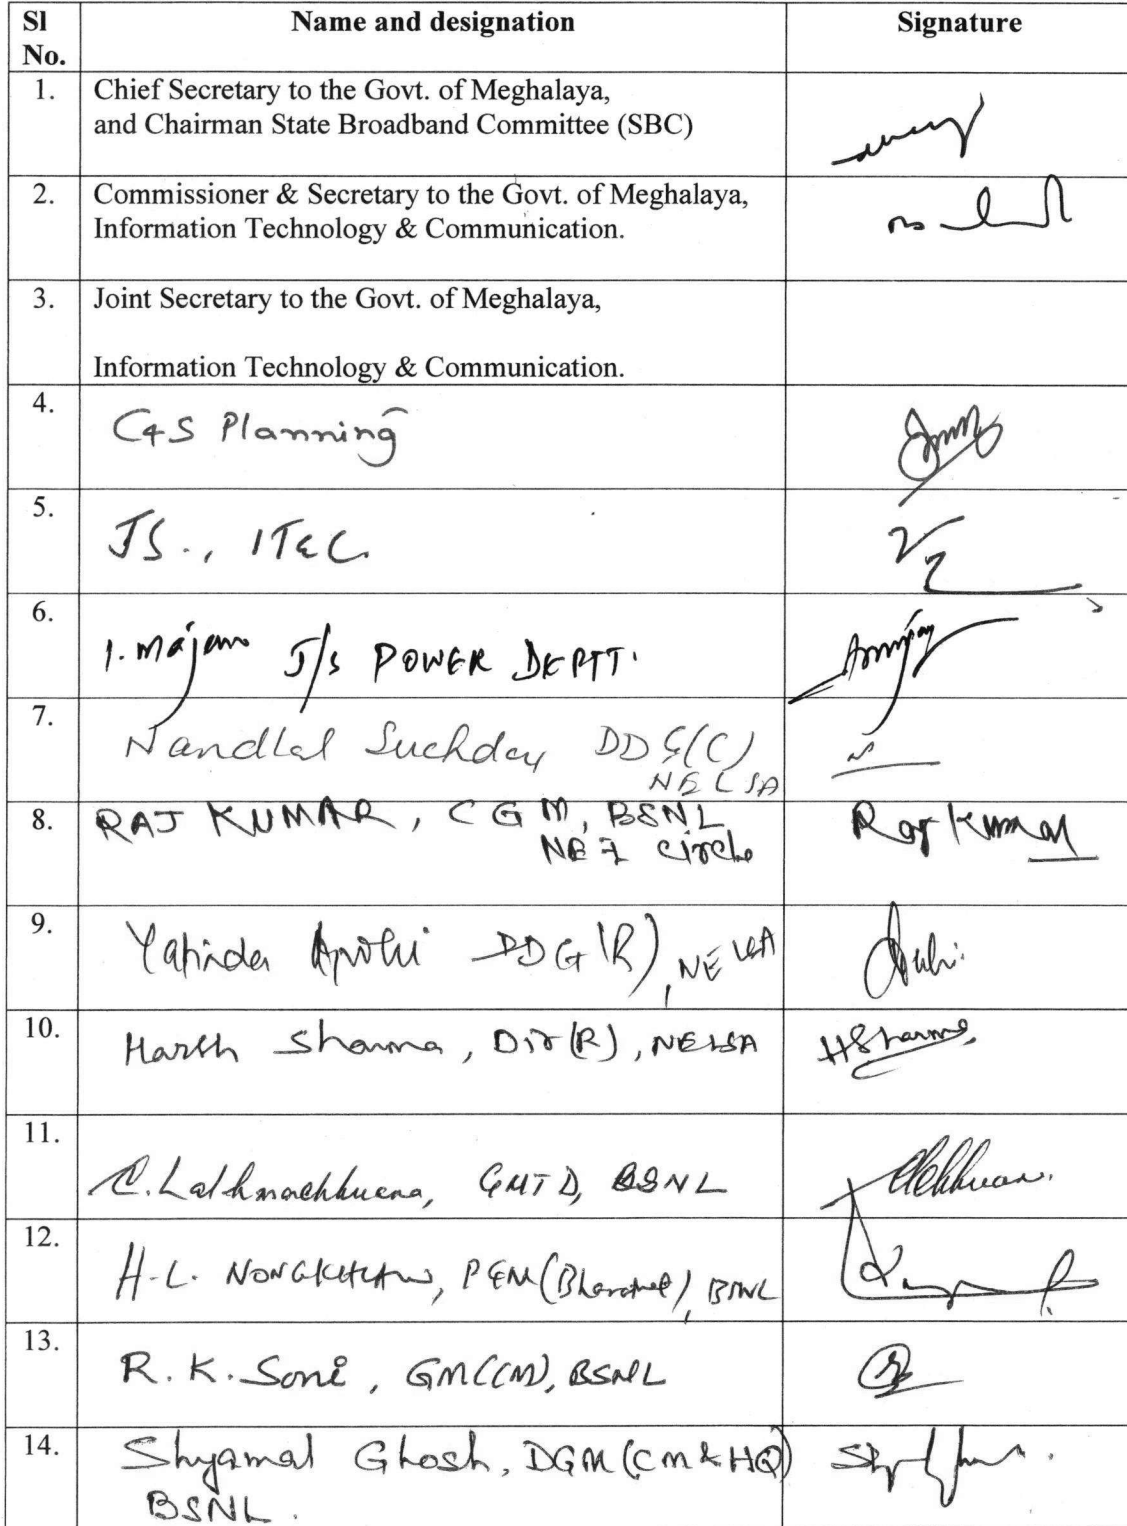 Sl No. Name and designation Signature
1. Chief Secretary to the Govt. of Meghalaya,
and Chairman State Broadband Committee (SBC)
2. Commissioner & Secretary to the Govt. of Meghalaya,
Information Technology & Communication.
3. Joint Secretary to the Govt. of Meghalaya,
Information Technology & Communication.
4. C&S Planning
5. JS., IT&C.
6. J/S POWER DEPTT.
7. Nandlal Suchdey DDG(C)
NELSA
8. RAJ KUMAR, CGM, BSNL Raj Kumar
NE-I Circle
9. DDG(R), NELSA
10. Harsh Sharma, Dir(R), NELSA HSharma
11. GMTD, BSNL
12. H.L. NONGKHLAW, PGM(Bharatnet), BSNL
13. R.K. Soni, GM(CM), BSNL
14. Shyamal Ghosh, DGM (CM & HQ)
BSNL.